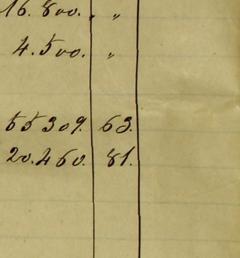 16.800. "
4.500. "
55309. 63.
20.460. 81.